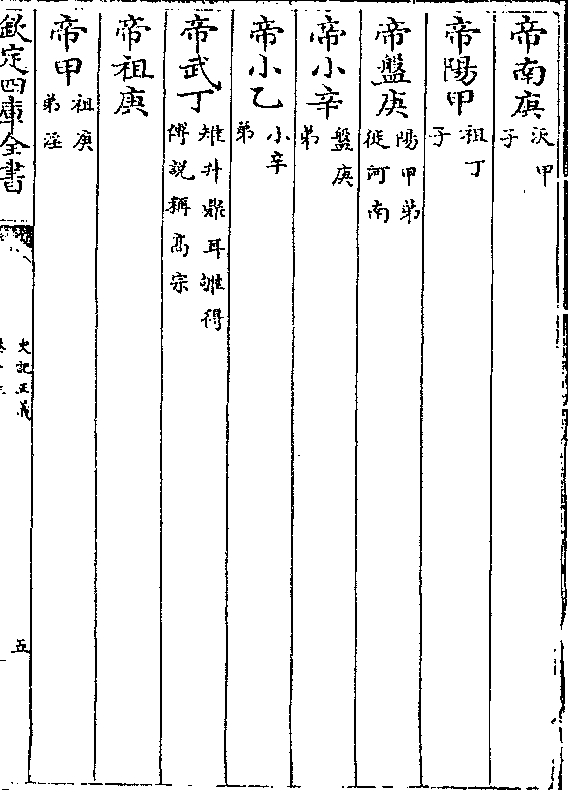 帝南庚沃甲子
帝陽甲祖丁子
帝盤庚陽甲弟徙河南
帝小辛盤庚弟
帝小乙小辛弟
帝武丁雉升鼎耳雊得傅說稱高宗
帝祖庚
帝甲祖庚弟淫
欽定四庫全書
史記正義
五